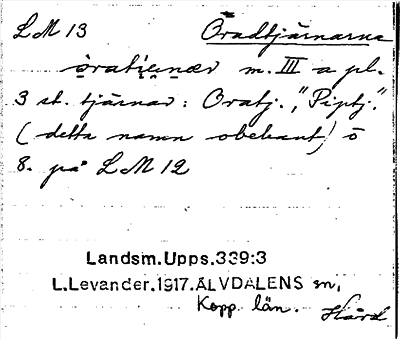 LM 13 Öradtjärnarna
öratjennär m. III a pl.
3 st. tjärnar: Oratj., "Piptj."
(detta namn obekant) ö
8. på LM 12
Landsm.Upps.339:3
L.Levander.1917.ÄLVDALENS sn,
Kopp. län. Hård